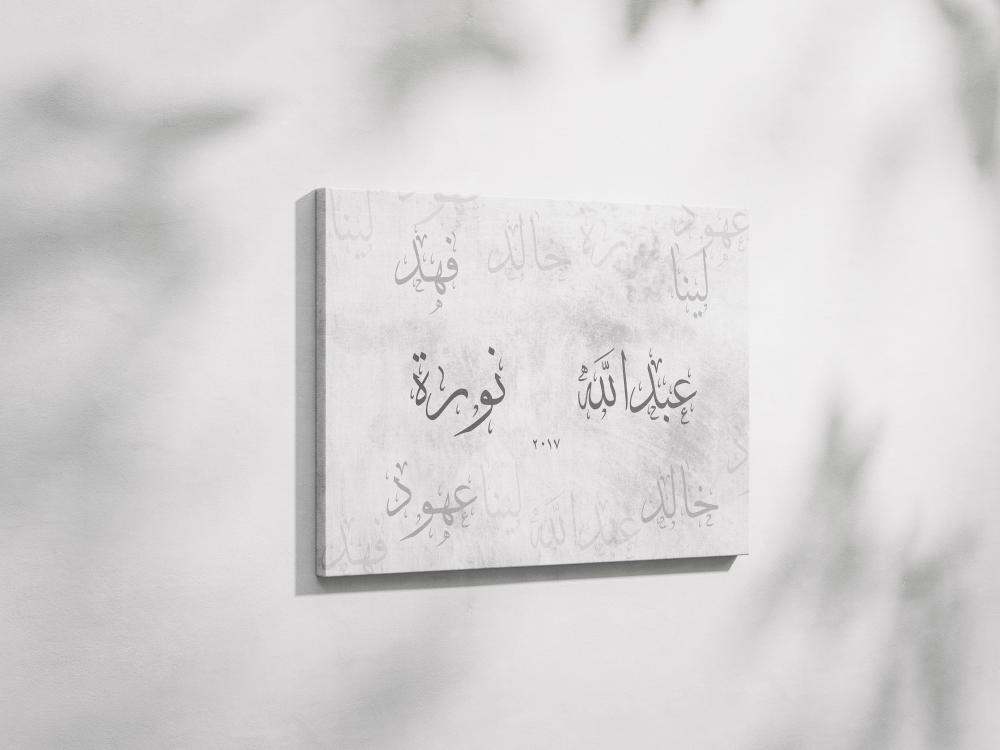 لينا عهود عهود
فهد خالد نورة لينا
عبدالله نورة
٢٠١٧
عهود لينا خالد
فهد عبدالله